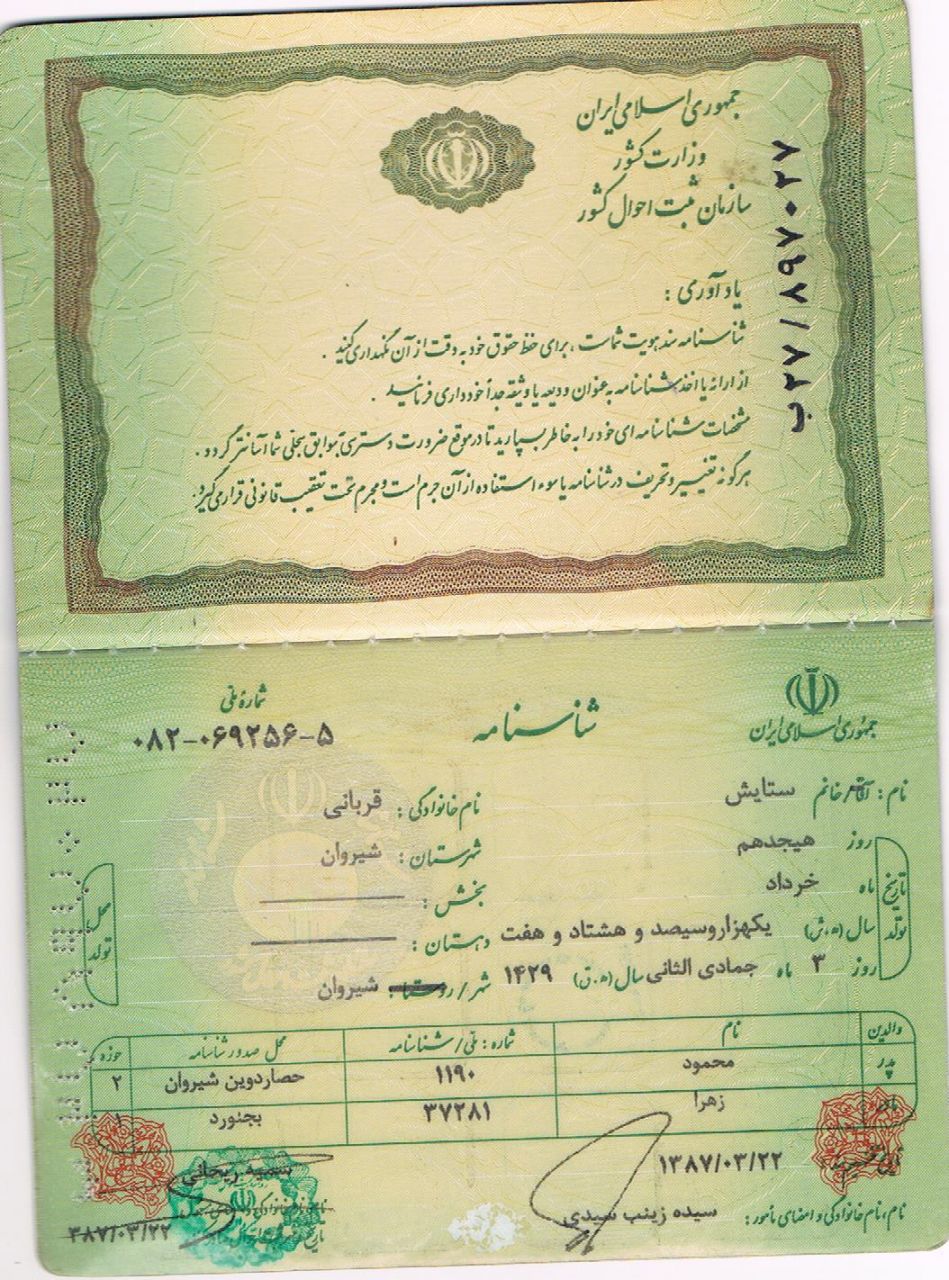 جمهوری اسلامی ایران
وزارت کشور
سازمان ثبت احوال کشور
ب۲۷/۸۹۷۰۲۷
یادآوری :
شناسنامه سند هویت شماست ، برای حفظ حقوق خود به دقت از آن نگهداری کنید .
از ارائه یا اخذ شناسنامه به عنوان ودیعه یا وثیقه جداً خودداری فرمائید .
مشخصات شناسنامه ای خود را به خاطر بسپارید تا در موقع ضرورت دسترسی به سوابق سجلی شما آسانتر گردد .
هرگونه تغییر و تحریف در شناسنامه یا سوء استفاده از آن جرم است و مجرم تحت تعقیب قانونی قرار می گیرد .
جمهوری اسلامی ایران
شناسنامه
شماره ملی
۰۸۲-۰۶۹۲۵۶-۵
نام : آقا/خانم ستایش نام خانوادگی : قربانی
تاریخ تولد
روز هیجدهم
ماه خرداد
سال (ه.ش) یکهزاروسیصد و هشتاد و هفت
روز ۳ ماه جمادی الثانی سال (ه.ق) ۱۴۲۹
محل تولد
شهرستان : شیروان
بخش :
دهستان :
شهر/روستا : شیروان
والدین نام شماره : ملی/شناسنامه محل صدور شناسنامه حوزه
پدر محمود ۱۱۹۰ حصاردوین شیروان ۲
مادر زهرا ۳۷۲۸۱ بجنورد ۱
۱۳۸۷/۰۳/۲۲
نام ، نام خانوادگی و امضای مأمور : سیده زینب سیدی
سمیه ریحانی
۳۸۷/۰۳/۲۲